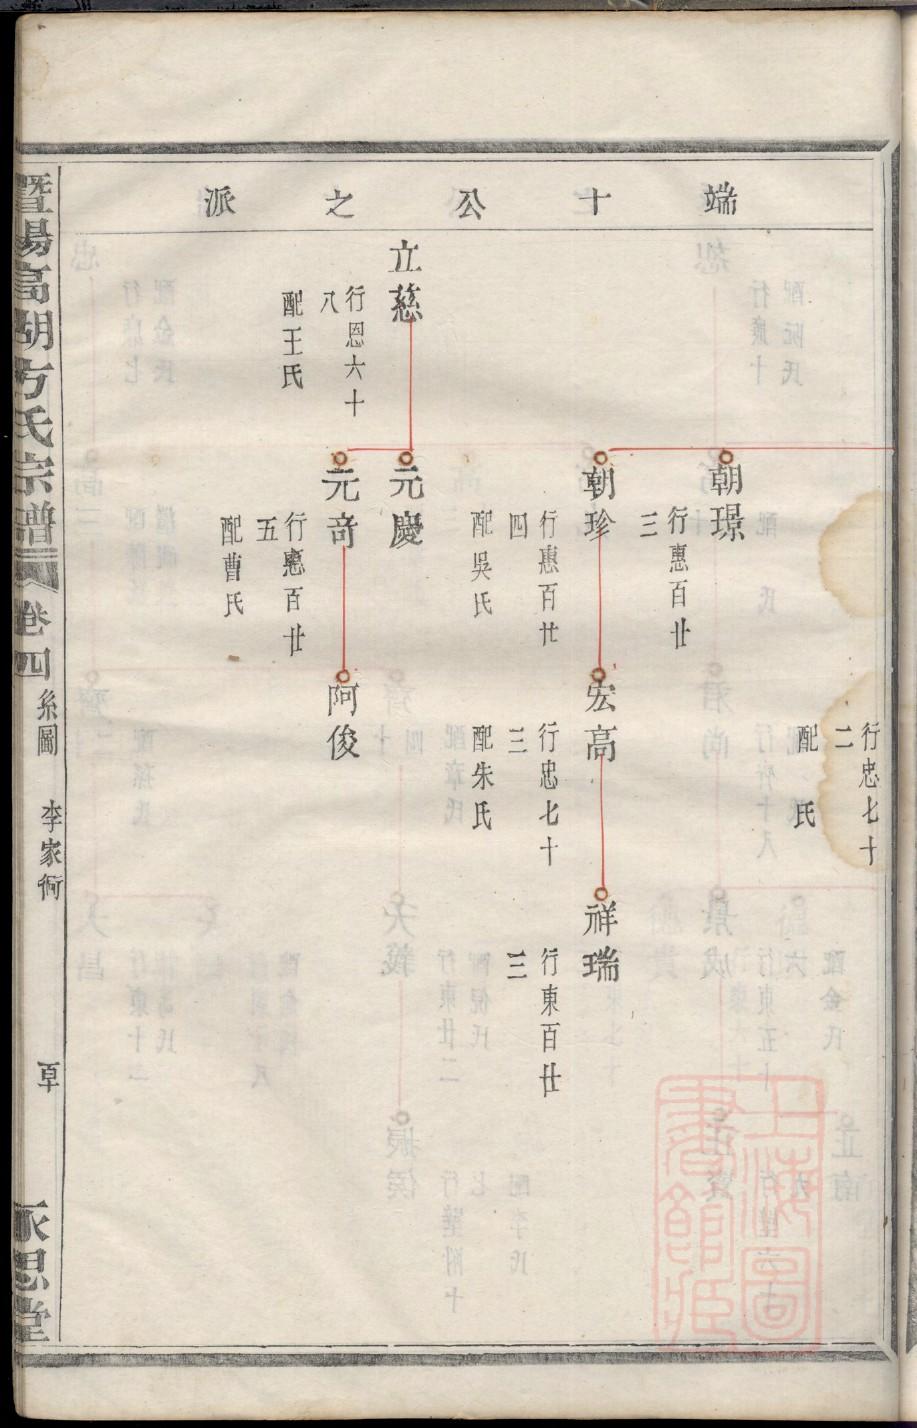 端十公之派
行忠七十
二
配　氏
朝璟
行惠百廿
三
朝珍
行惠百廿
四
配吳氏
宏高
行忠七十
三
配朱氏
祥瑞
行東百廿
三
立慈
行恩六十
八
配王氏
元慶
元奇
行惠百廿
五
配曹氏
阿俊
暨陽高湖方氏宗譜
卷四
系圖
李家衖
永思堂